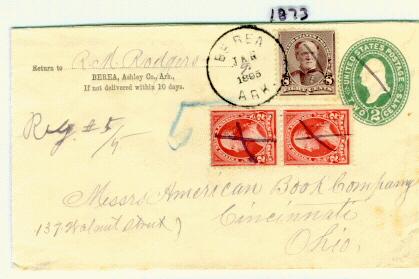 1873
Return to R. M. Rodgers
BEREA, Ashley Co., Ark.,
If not delivered within 10 days.
BEREA
JAN
1895
ARK.
UNITED STATES POSTAGE
TWO 2 CENTS
Reg. # 5/5
5
Messrs American Book Company
137 Walnut Street)
Cincinnati
Ohio.